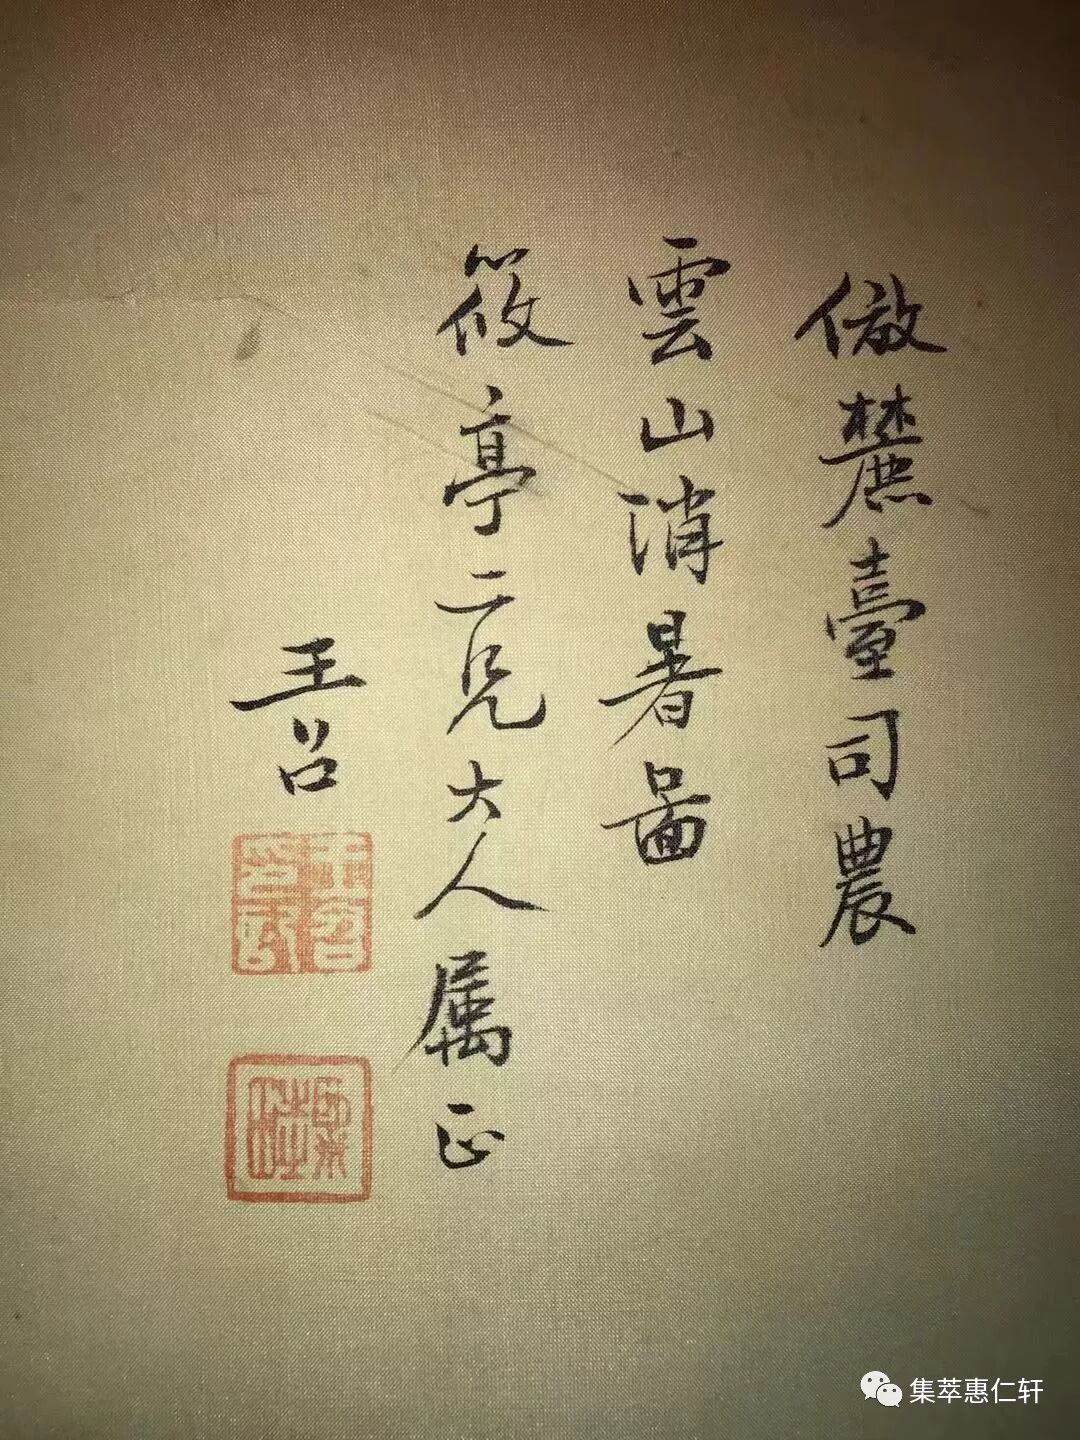 倣麓臺司農
雲山消暑圖
筱亭二兄大人属正
王召
集萃惠仁轩